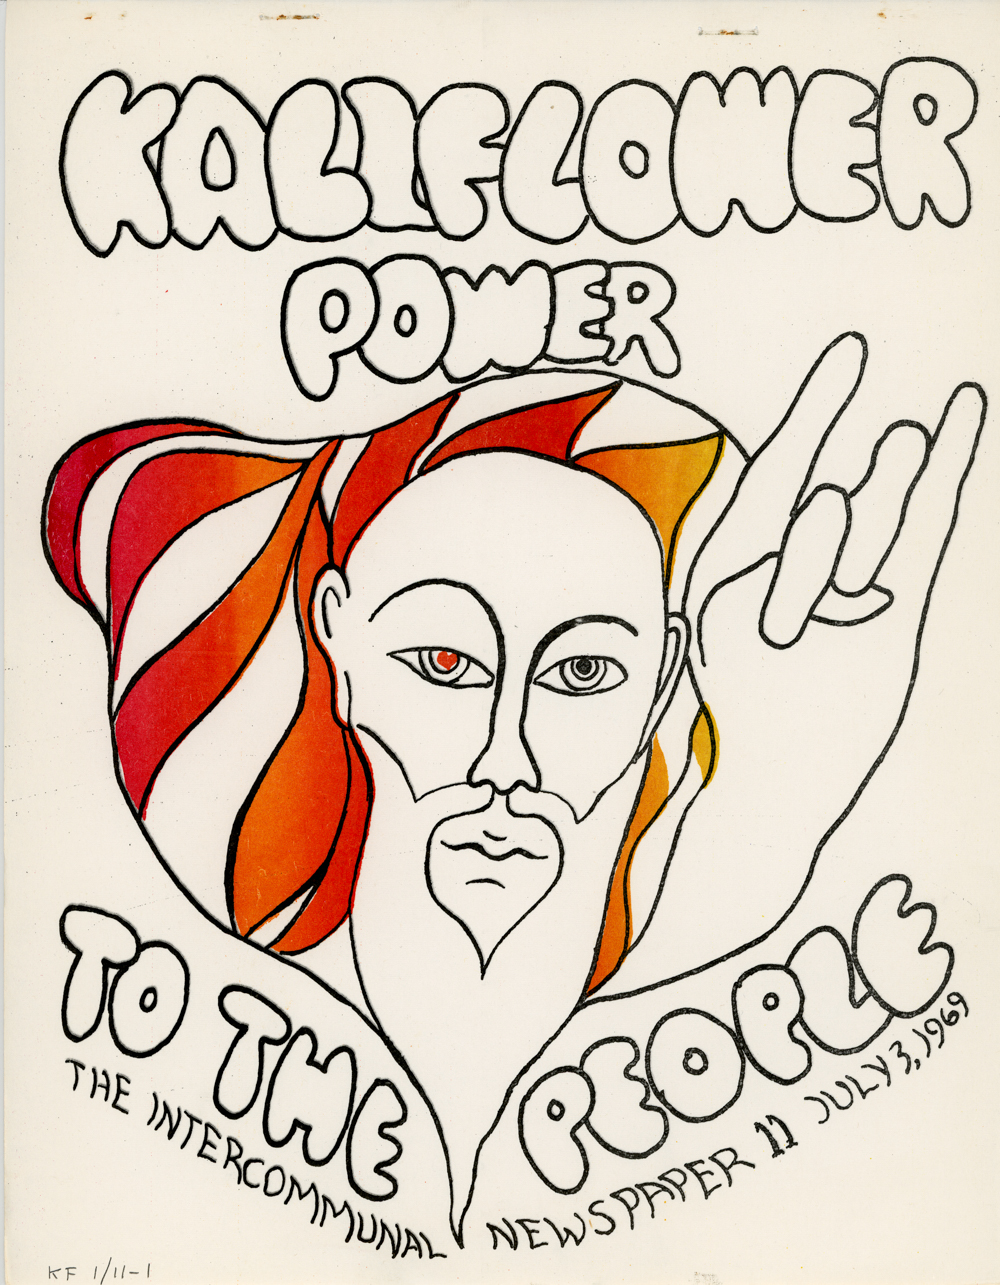 KALIFLOWER
POWER
TO THE PEOPLE
THE INTERCOMMUNAL NEWSPAPER 11 JULY 3, 1969
KF 1/11-1